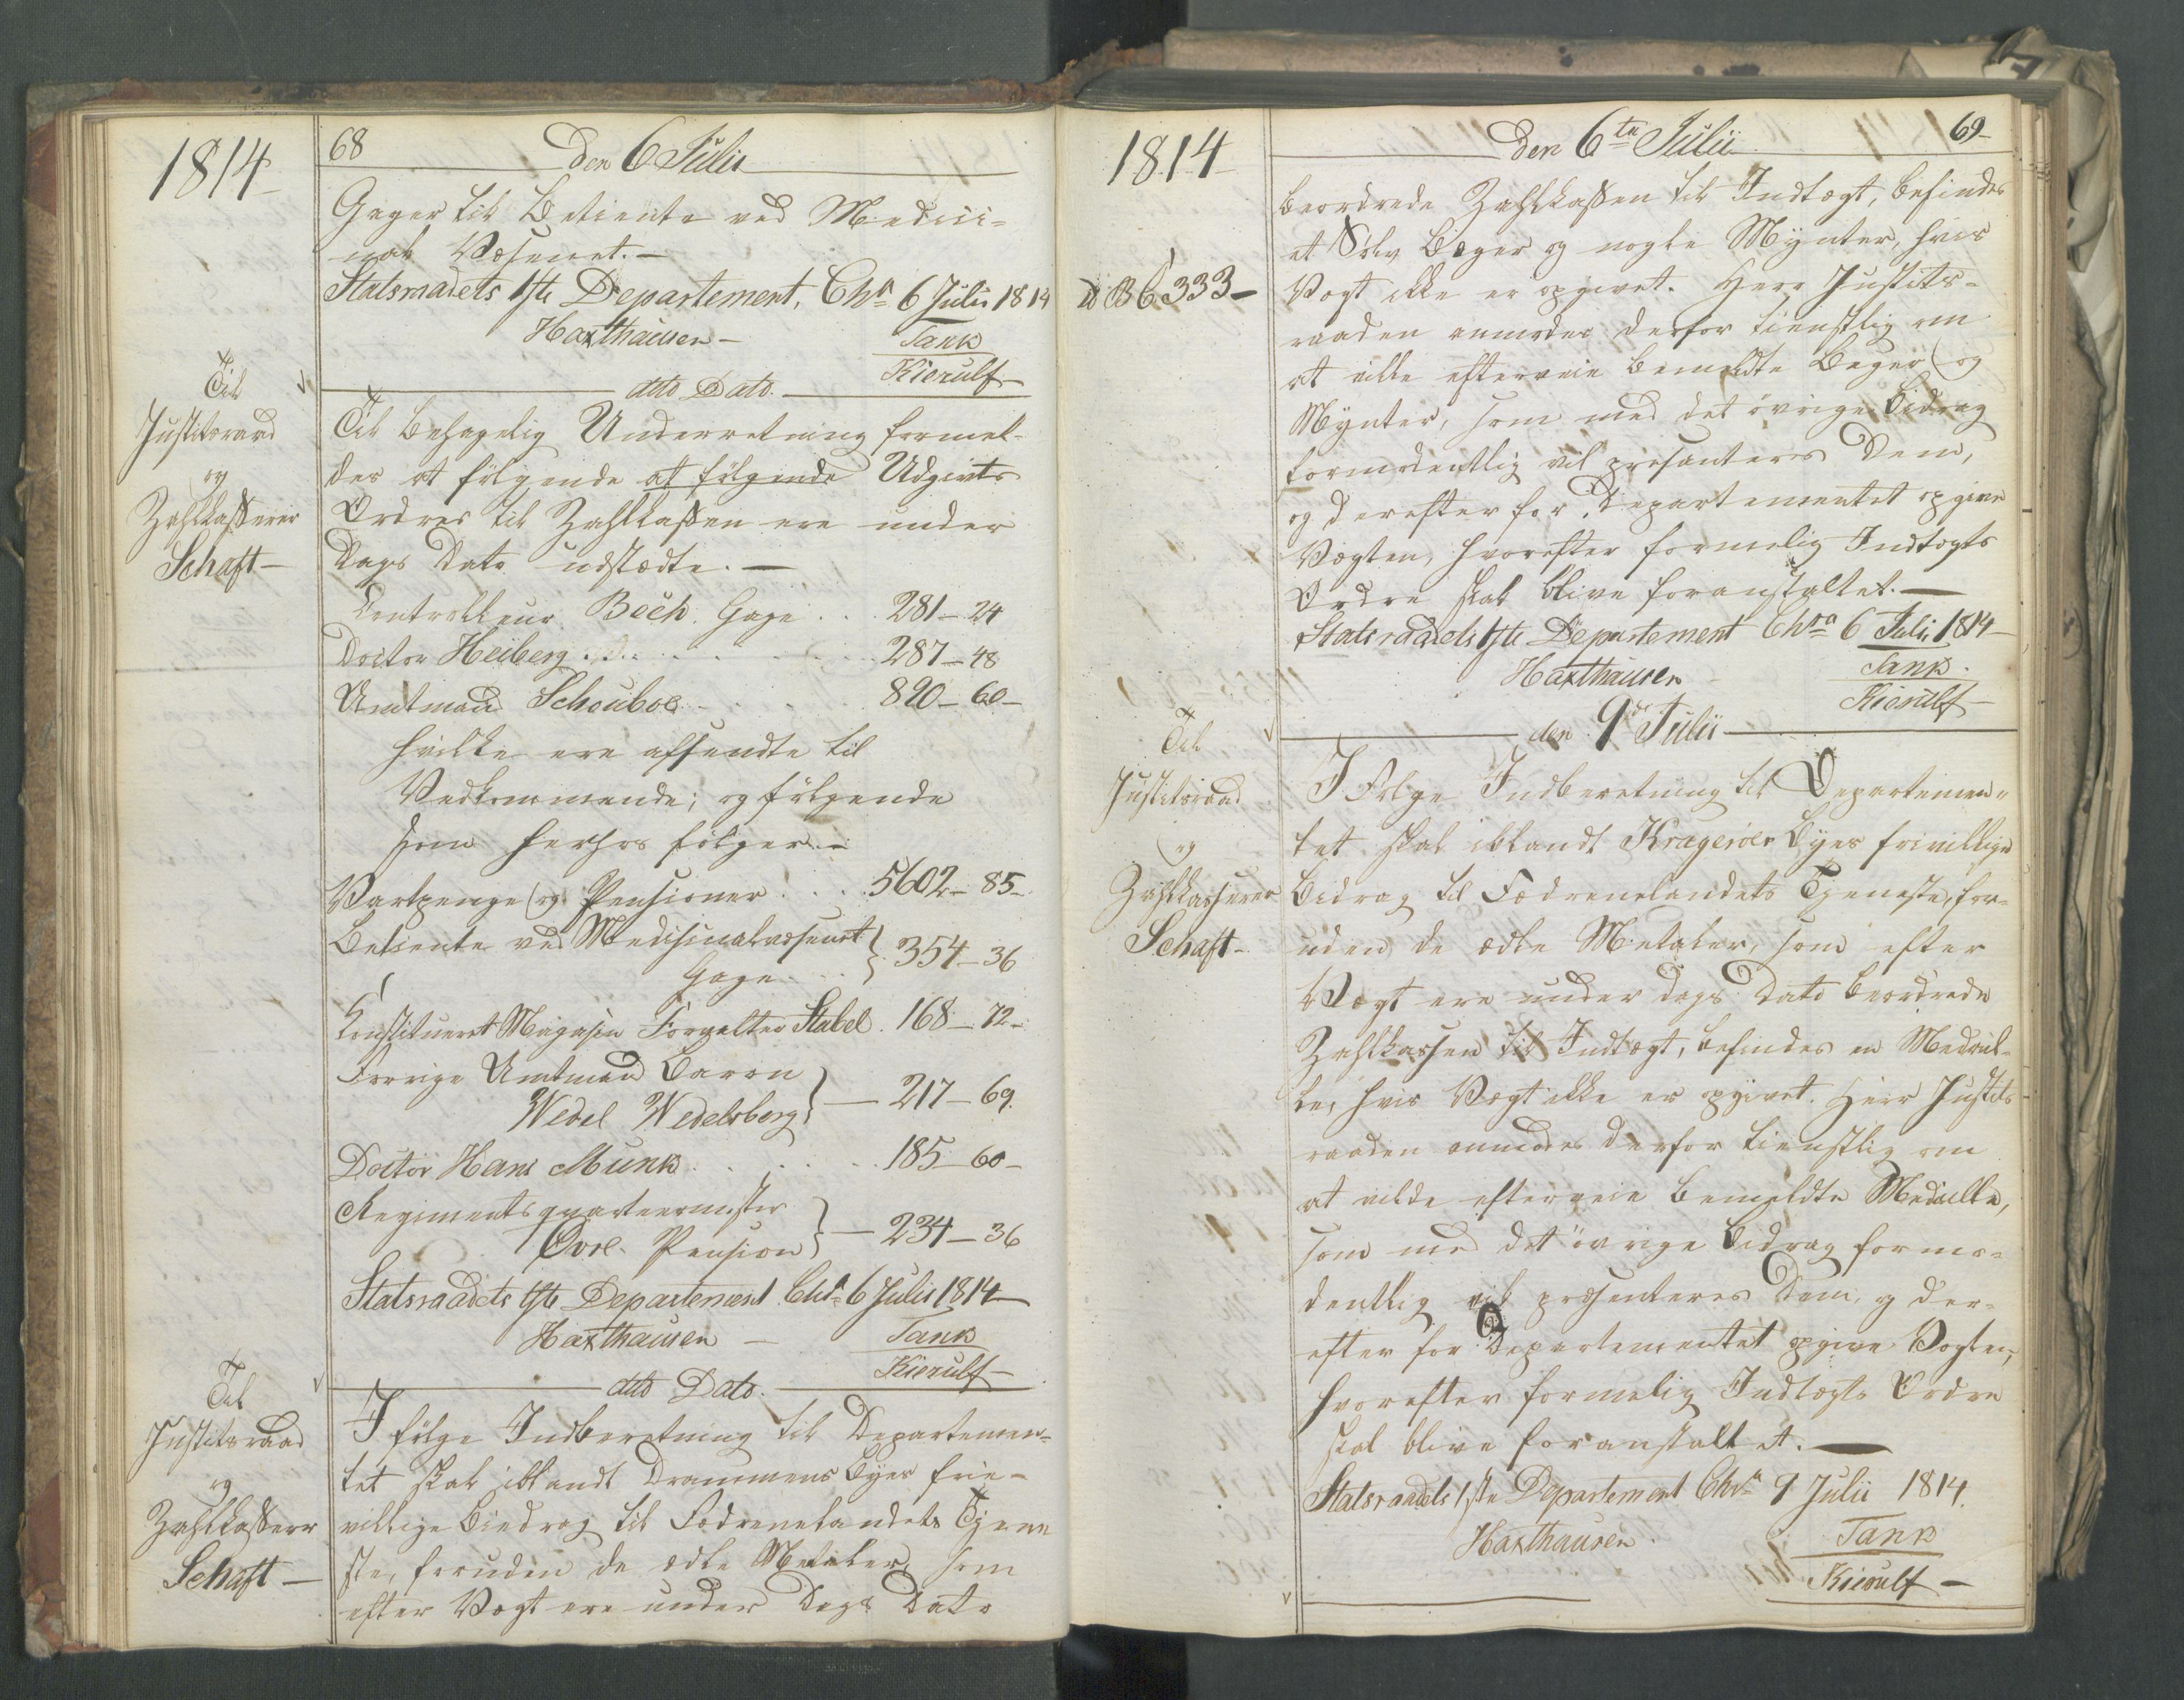 1814
68
den 6 Julii
Gager til Betiente ved Medici=
nal Væsenet.—
Statsraadets 1ste Departement, Chra 6 Julii 1814
Haxthausen—
Tank
Kierulf—
Til
Justitsraad
og
Zahlkasserer
Schaft—
dtto Dato.
Til behagelig Underretning formel-
des at følgende at følgende Udgivts
Ordres til Zahlkassen ere under
Dags Dato udstædte.—
Controlleur Bech. Gage . . 281—24
Doctor Heiberg . do . . . 287—48
Amtmand Schouboe . . . 820—60—
hvilke ere afsendte til
Vedkommende; og følgende
som herhos følger.—
Vartpenge og Pensioner . . . 5602—85—
Betiente ved Medisinalvæsenet
Gage . . } 354—36
Constitueret Magasin Forvalter Stabel. 168—72—
Forrige Amtmand Baron
Wedel Wedelsborg } — 217—69.
Doctor Hans Munk . . . . 185—60—
Regimentsquarteermester
Øvre. Pension } — 234—36
Statsraadets 1ste Departement Chra 6 Julii 1814—
Haxthausen—
Tank
Kierulf—
Til
Justitsraad
og
Zahlkasserer
Schaft—
dtto Dato.
I følge Indberetning til Departemen=
tet skal iblandt Drammens Byes frie-
villige Biedrag til Fædrenelandets Tjene
ste, foruden de ædle Metaler, som
efter Vægt ere under Dags Dato
1814
den 6te Julii
69—
beordrede Zahlkassen til Indtægt, befindes
et Sølv Bæger og nogle Mynter, hvis
B 6333—
Vægt ikke er opgivet. Herr Justits=
raaden anmodes derfor tienstlig om
at ville efterveie bemeldte Bæger og
Mynter, som med det øvrige Bidrag
formodentlig vil præsenteres Dem,
og derefter for Departementet opgive
Vægten, hvorefter formelig Indtægts
Ordre skal blive foranstaltet.—
Statsraadets 1ste Departement Chra 6 Julii 1814—
Haxthausen
Tank.
Kierulf—
Til
Justitsraad
og
Zahlkasserer
Schaft—
den 9de Julii
I Følge Indberetning til Departemen=
tet skal iblandt Kragerøes Byes frivillige
Bidrag til Fædrenelandets Tjeneste, for-
uden de ædle Metaler, som efter
Vægt ere under dags Dato beordrede
Zahlkassen til Indtægt, befindes en Medail-
le, hvis Vægt ikke er opgivet. Herr Justits
raaden anmodes derfor tienstlig om
at vilde efterveie bemeldte Medaille,
som med det øvrige Bidrag formo=
dentlig vil præsenteres Dem, og der=
efter for Departementet opgive Vægten,
hvorefter formelig Indtægts Ordre
skal blive foranstaltet.—
Statsraadets 1ste Departement Chra 9 Julii 1814.
Haxthausen.
Tank
Kierulf—